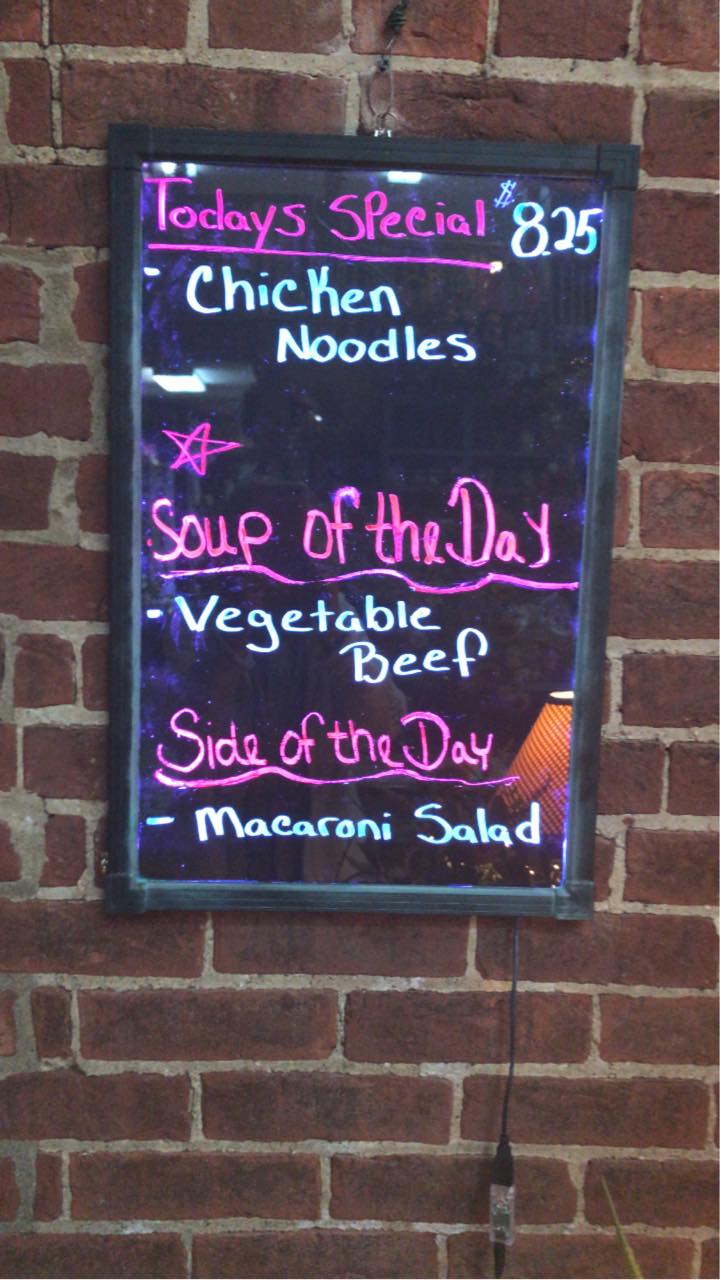 Todays Special $8.25
- Chicken
Noodles
Soup of the Day
- Vegetable
Beef
Side of the Day
- Macaroni Salad